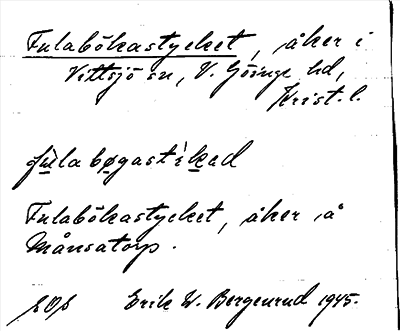 Fulabökastycket, åker i
Vittsjö sn, V. Göinge hd,
Krist. l.
fulabøgastikad
Fulabökastycket, åker å
Månsatorp.
Erik W. Bergenrud 1945.